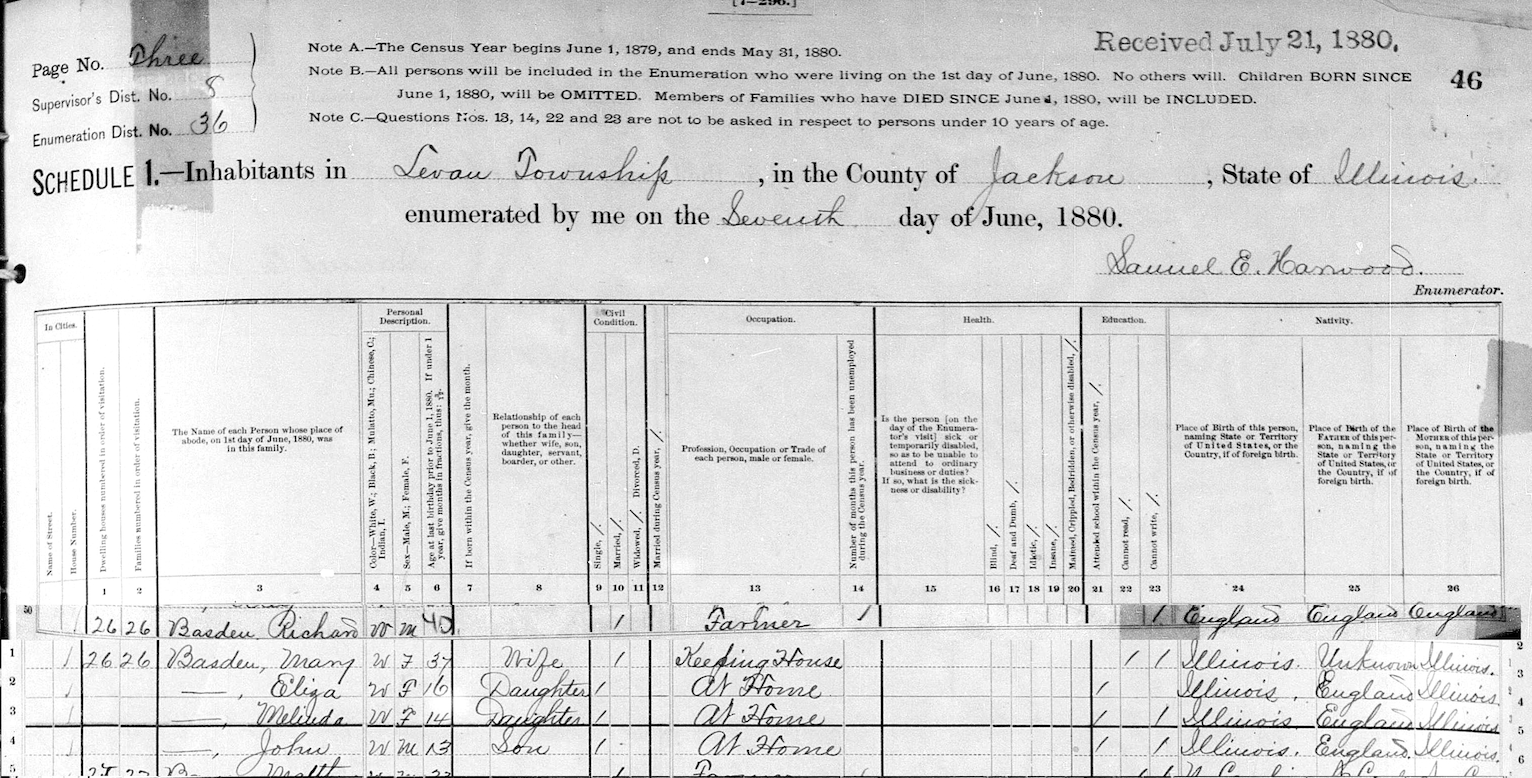 [7-296.]
Page No. Three
Supervisor's Dist. No. 8
Enumeration Dist. No. 36
Note A.—The Census Year begins June 1, 1879, and ends May 31, 1880.
Note B.—All persons will be included in the Enumeration who were living on the 1st day of June, 1880. No others will. Children BORN SINCE
June 1, 1880, will be OMITTED. Members of Families who have DIED SINCE June 1, 1880, will be INCLUDED.
Note C.—Questions Nos. 13, 14, 22 and 23 are not to be asked in respect to persons under 10 years of age.
Received July 21, 1880.
46
SCHEDULE 1.—Inhabitants in Levan Township, in the County of Jackson, State of Illinois.
enumerated by me on the Seventh day of June, 1880.
Samuel E. Harwood.
Enumerator.
In Cities.
Name of Street.
House Number.
Dwelling houses numbered in order of visitation.
Families numbered in order of visitation.
The Name of each Person whose place of
abode, on 1st day of June, 1880, was
in this family.
Personal
Description.
Color—White, W.; Black, B.; Mulatto, Mu.; Chinese, C.;
Indian, I.
Sex—Male, M.; Female, F.
Age at last birthday prior to June 1, 1880. If under 1
year, give months in fractions, thus: 3/12.
If born within the Census year, give the month.
Relationship of each
person to the head
of this family—
whether wife, son,
daughter, servant,
boarder, or other.
Civil
Condition.
Single, /.
Married, /.
Widowed, /. Divorced, D.
Married during Census year, /.
Occupation.
Profession, Occupation or Trade of
each person, male or female.
Number of months this person has been unemployed
during the Census year.
Health.
Is the person [on the
day of the Enumera-
tor's visit] sick or
temporarily disabled,
so as to be unable to
attend to ordinary
business or duties?
If so, what is the sick-
ness or disability?
Blind, /.
Deaf and Dumb, /.
Idiotic, /.
Insane, /.
Maimed, Crippled, Bedridden, or otherwise disabled, /.
Education.
Attended school within the Census year, /.
Cannot read, /.
Cannot write, /.
Nativity.
Place of Birth of this person,
naming State or Territory
of United States, or the
Country, if of foreign birth.
Place of Birth of the
FATHER of this per-
son, naming the
State or Territory
of United States, or
the Country, if of
foreign birth.
Place of Birth of the
MOTHER of this per-
son, naming the
State or Territory
of United States, or
the Country, if of
foreign birth.
1 2 3 4 5 6 7 8 9 10 11 12 13 14 15 16 17 18 19 20 21 22 23 24 25 26
50 1 26 26 Basden Richard W M 1 Farmer 1 1 England England England
1 1 26 26 Basden, Mary W F 37 Wife 1 Keeping House 1 1 Illinois. Unknown Illinois. 2
2 1 —, Eliza W F 16 Daughter 1 At Home 1 Illinois. England Illinois 3
3 1 —, Melinda W F 14 Daughter 1 At Home 1 1 Illinois England Illinois 4
4 1 —, John W M 13 Son 1 At Home 1 1 Illinois. England. Illinois. 5
5 6